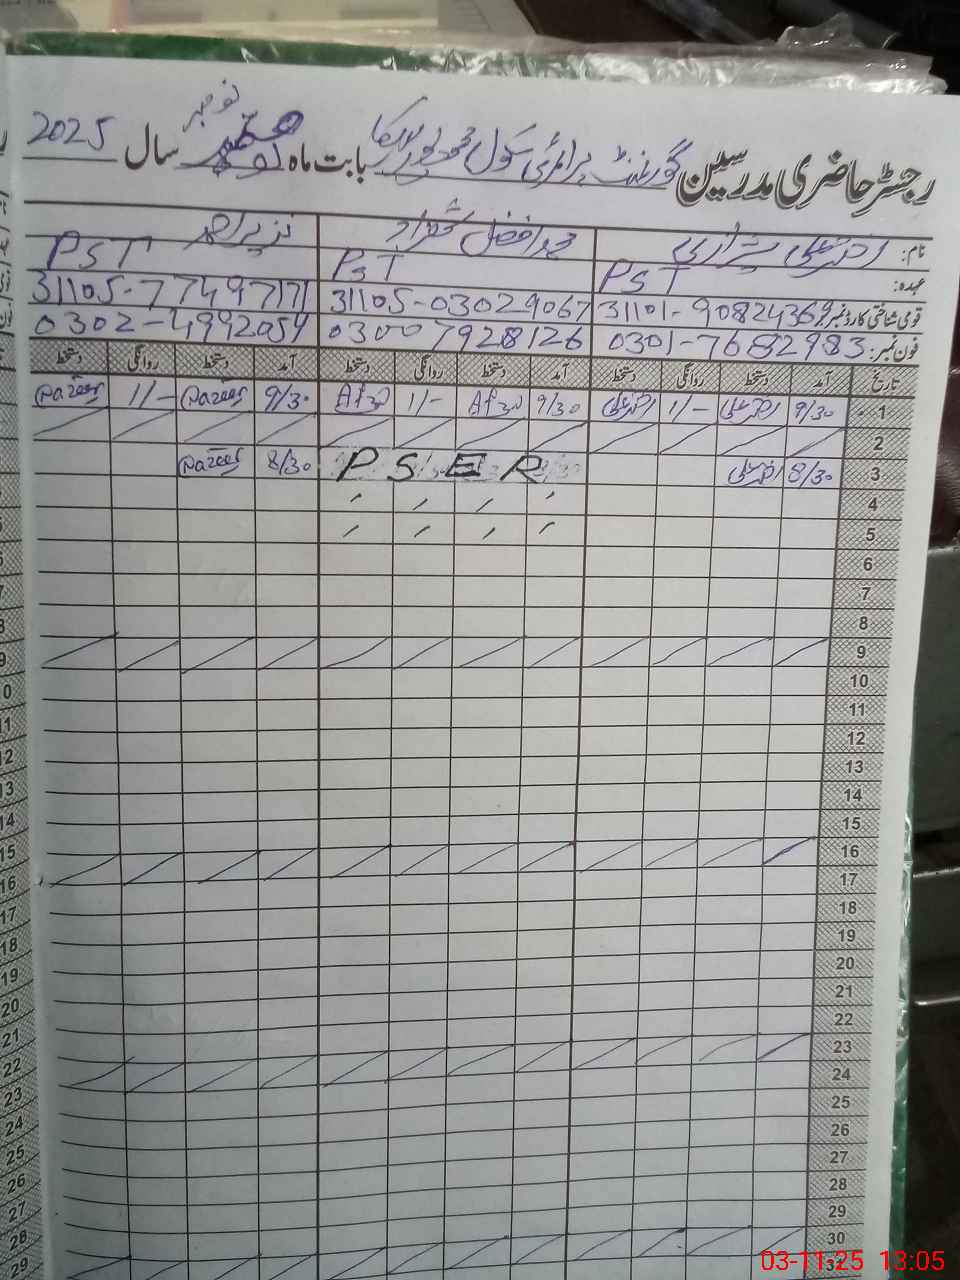 رجسٹر حاضری مدرسین گورنمنٹ پرائمری سکول بابت ماہ نومبر سال 2025
نام: محمد افضل شہزاد نذیر احمد
عہدہ: PST PST PST
قومی شناختی کارڈ نمبر: 31105-03029067 31105-77497171
فون نمبر: 0301-7682983 0300 7928126 0302-4992054
تاریخ آمد دستخط روانگی دستخط آمد دستخط روانگی دستخط آمد دستخط روانگی دستخط
1 9/30 1/- 9/30 Afzal 1/- Afzal 9/30 Nazeer 1/- Nazeer
2
3 8/30 PSER 8/30 Nazeer
4
5
6
7
8
9
10
11
12
13
14
15
16
17
18
19
20
21
22
23
24
25
26
27
28
29
30
03-11-25 13:05